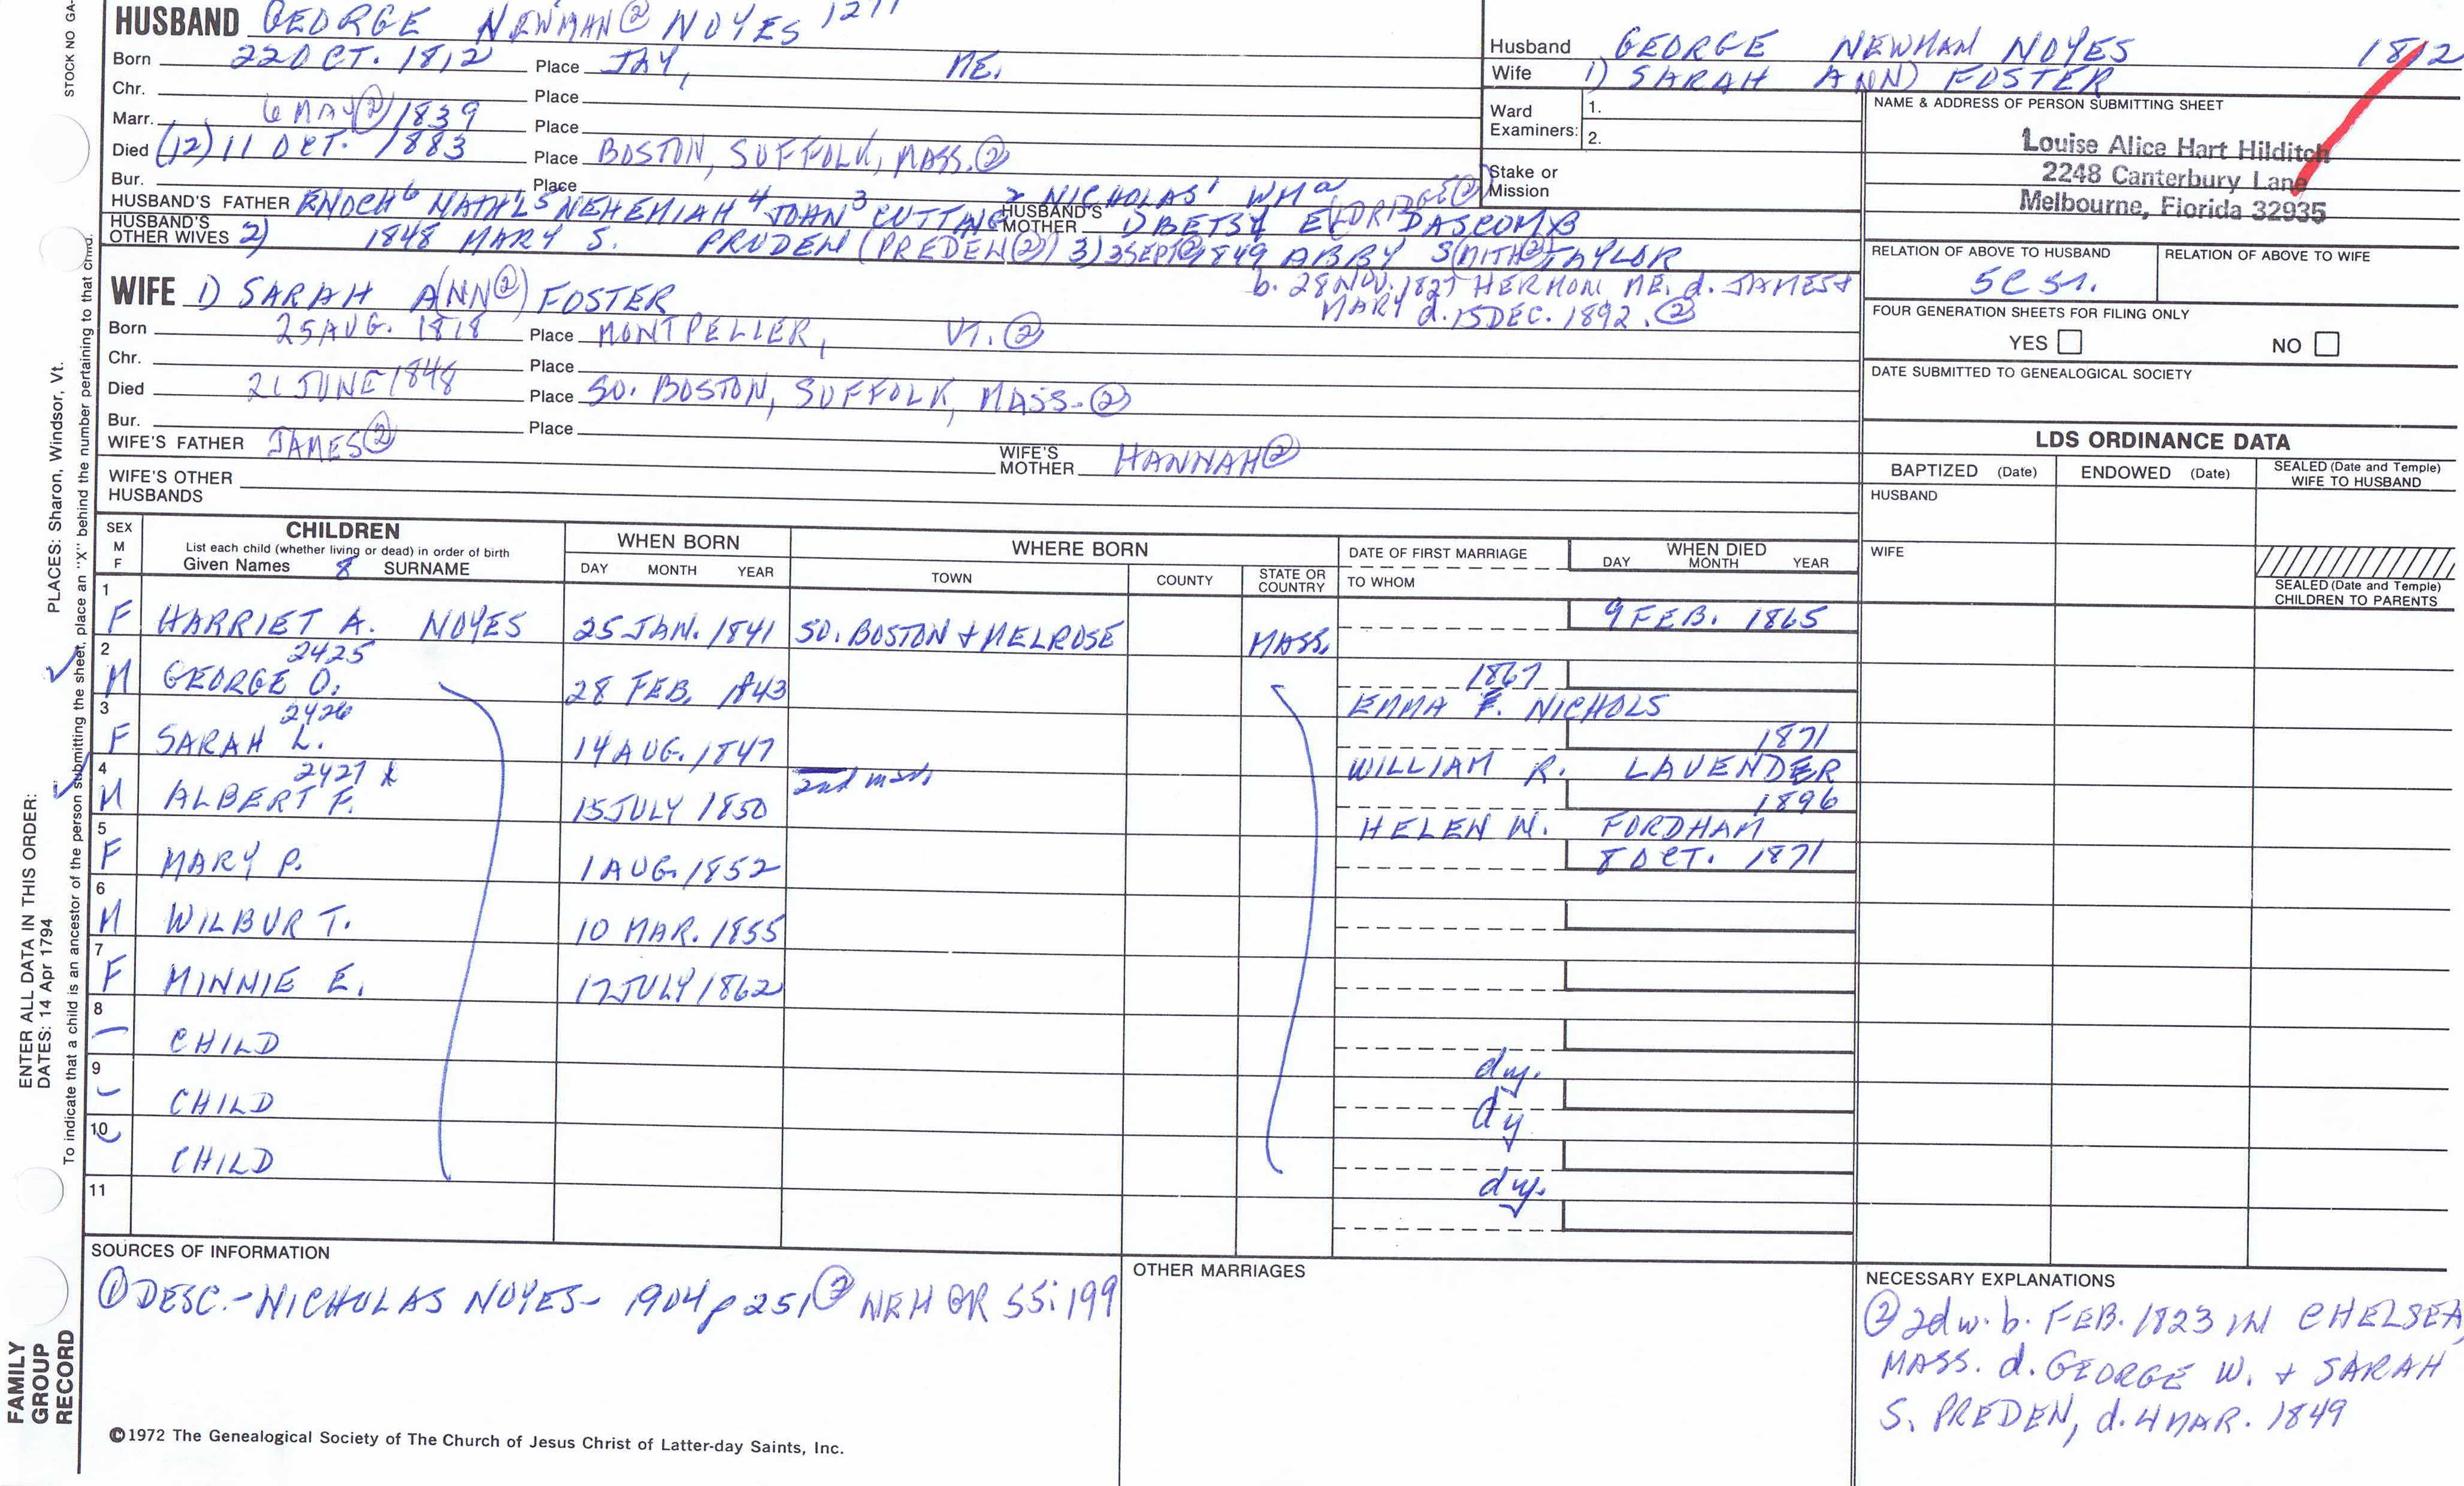 STOCK NO GA-
HUSBAND GEORGE NEWMAN② NOYES 1211
Born 22 OCT. 1812 Place JAY, ME.
Chr. Place
Marr. 6 MAY② 1839 Place
Died (12) 11 OCT. 1883 Place BOSTON, SUFFOLK, MASS.②
Bur. Place
HUSBAND'S FATHER ENOCH⁶ NATH'L⁵ NEHEMIAH⁴ JOHN³ CUTTING² NICHOLAS¹ WMᵃ
HUSBAND'S MOTHER 1) BETSY DASCOMB
HUSBAND'S OTHER WIVES 2) 1848 MARY S. PRUDEN (PREDEN②) 3) 3 SEPT② 1849 ABBY S(MITH②) TAYLOR
b. 28 NOV. 1827 HERMON ME. d. JAMES +
MARY d. 15 DEC. 1892. ②
WIFE 1) SARAH A(NN②) FOSTER
Born 25 AUG. 1818 Place MONTPELIER, VT. ②
Chr. Place
Died 21 JUNE 1848 Place SO. BOSTON, SUFFOLK, MASS-②
Bur. Place
WIFE'S FATHER JAMES② WIFE'S MOTHER HANNAH②
WIFE'S OTHER HUSBANDS
Husband GEORGE NEWMAN NOYES 1812
Wife 1) SARAH A(NN) FOSTER
Ward Examiners: 1.
2.
Stake or Mission
NAME & ADDRESS OF PERSON SUBMITTING SHEET
Louise Alice Hart Hilditch
2248 Canterbury Lane
Melbourne, Florida 32935
RELATION OF ABOVE TO HUSBAND RELATION OF ABOVE TO WIFE
5C 5r.
FOUR GENERATION SHEETS FOR FILING ONLY
YES NO
DATE SUBMITTED TO GENEALOGICAL SOCIETY
LDS ORDINANCE DATA
BAPTIZED (Date) ENDOWED (Date) SEALED (Date and Temple) WIFE TO HUSBAND
HUSBAND
WIFE
SEALED (Date and Temple) CHILDREN TO PARENTS
SEX M F CHILDREN WHEN BORN WHERE BORN DATE OF FIRST MARRIAGE WHEN DIED
List each child (whether living or dead) in order of birth
Given Names 8 SURNAME DAY MONTH YEAR TOWN COUNTY STATE OR COUNTRY TO WHOM DAY MONTH YEAR
1 F HARRIET A. NOYES 25 JAN. 1841 SO. BOSTON + MELROSE MASS. 9 FEB. 1865
2 M GEORGE O. 2425 28 FEB. 1843 1867
EMMA F. NICHOLS
3 F SARAH L. 2426 14 AUG. 1847 1871
WILLIAM R. LAVENDER
4 M ALBERT F. 2427 x 15 JULY 1850 2nd 1896
HELEN W. FORDHAM
5 F MARY P. 1 AUG. 1852 8 OCT. 1871
6 M WILBUR T. 10 MAR. 1855
7 F MINNIE E. 17 JULY 1862
8 CHILD dy.
9 CHILD dy
10 CHILD dy.
11
SOURCES OF INFORMATION
① DESC.- NICHOLAS NOYES- 1904 p 251 ② NEHGR 55:199
OTHER MARRIAGES
NECESSARY EXPLANATIONS
② 2d w. b. FEB. 1823 IN CHELSEA,
MASS. d. GEORGE W. + SARAH
S. PREDEN, d. 4 MAR. 1849
©1972 The Genealogical Society of The Church of Jesus Christ of Latter-day Saints, Inc.
FAMILY GROUP RECORD
ENTER ALL DATA IN THIS ORDER:
DATES: 14 Apr 1794
PLACES: Sharon, Windsor, Vt.
To indicate that a child is an ancestor of the person submitting the sheet, place an "X" behind the number pertaining to that child.